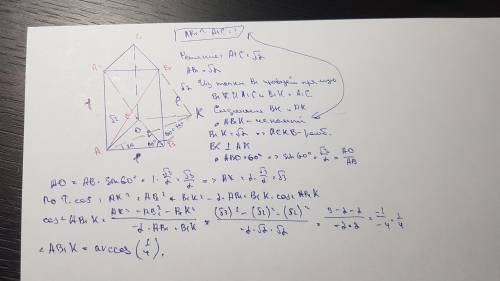 AB₁ ^ A₁C - ?
Решение: A₁C = √2
AB₁ = √2
Из точки B₁ проведём прямую
B₁K || A₁C и B₁K = A₁C
Соединим BK и AK
∠AB₁K - искомый
B₁K = √2 => ACKB - ромб.
BC ⊥ AK
∠ABO = 60° => sin 60° = √3/2 = AO/AB
AO = AB · sin 60° = 1 · √3/2 = √3/2 => AK = 2 · √3/2 = √3
По т. cos: AK² = AB₁² + B₁K² - 2 · AB₁ · B₁K · cos AB₁K
cos ∠AB₁K = (AK² - AB₁² - B₁K²)/(-2 · AB₁ · B₁K) = ((√3)² - (√2)² - (√2)²)/(-2 · √2 · √2) = (3-2-2)/(-2·2) = -1/-4 = 1/4
∠AB₁K = arccos (1/4).
A₁
B₁
C₁
A
B
K
O
√2
√2
1
1
60°